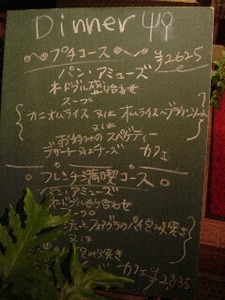 Dinner
プチコース ¥2625
パン・アミューズ
オードブル盛り合わせ
スープ
カニオムライス 又は オムライス
又は
スパゲティー
デザート 又は チーズ カフェ
フレンチ満喫コース
パン・アミューズ
オードブル盛り合わせ
スープ
フォアグラのパイ包み焼き
又は
包み焼き
カフェ